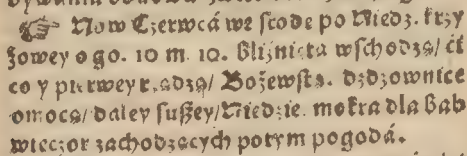 ☞ Now Czerwcá we srode po Niedz. krzy
żowey o go. 10 m. 12. Bliźnięta wschodzą/ ci
co y pierwey r.adzą/ Bożewsta. dżdżownice
omocą/ daley suszey/ Niedzie. mokra dla Bab
wieczor zachodzących potym pogodá.